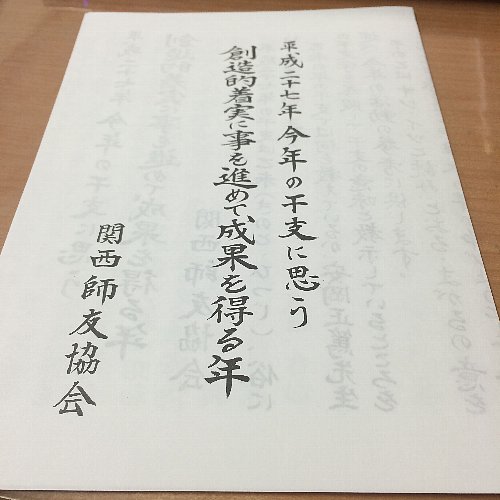 平成二十七年 今年の干支に思う
創造的着実に事を進めて、成果を得る年
関西師友協会